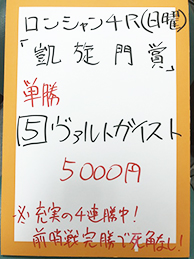 ロンシャン4R(日曜)
「凱旋門賞」
単勝
5 ヴァルトガイスト
5000円
※充実の4連勝中!
前哨戦完勝で死角なし!